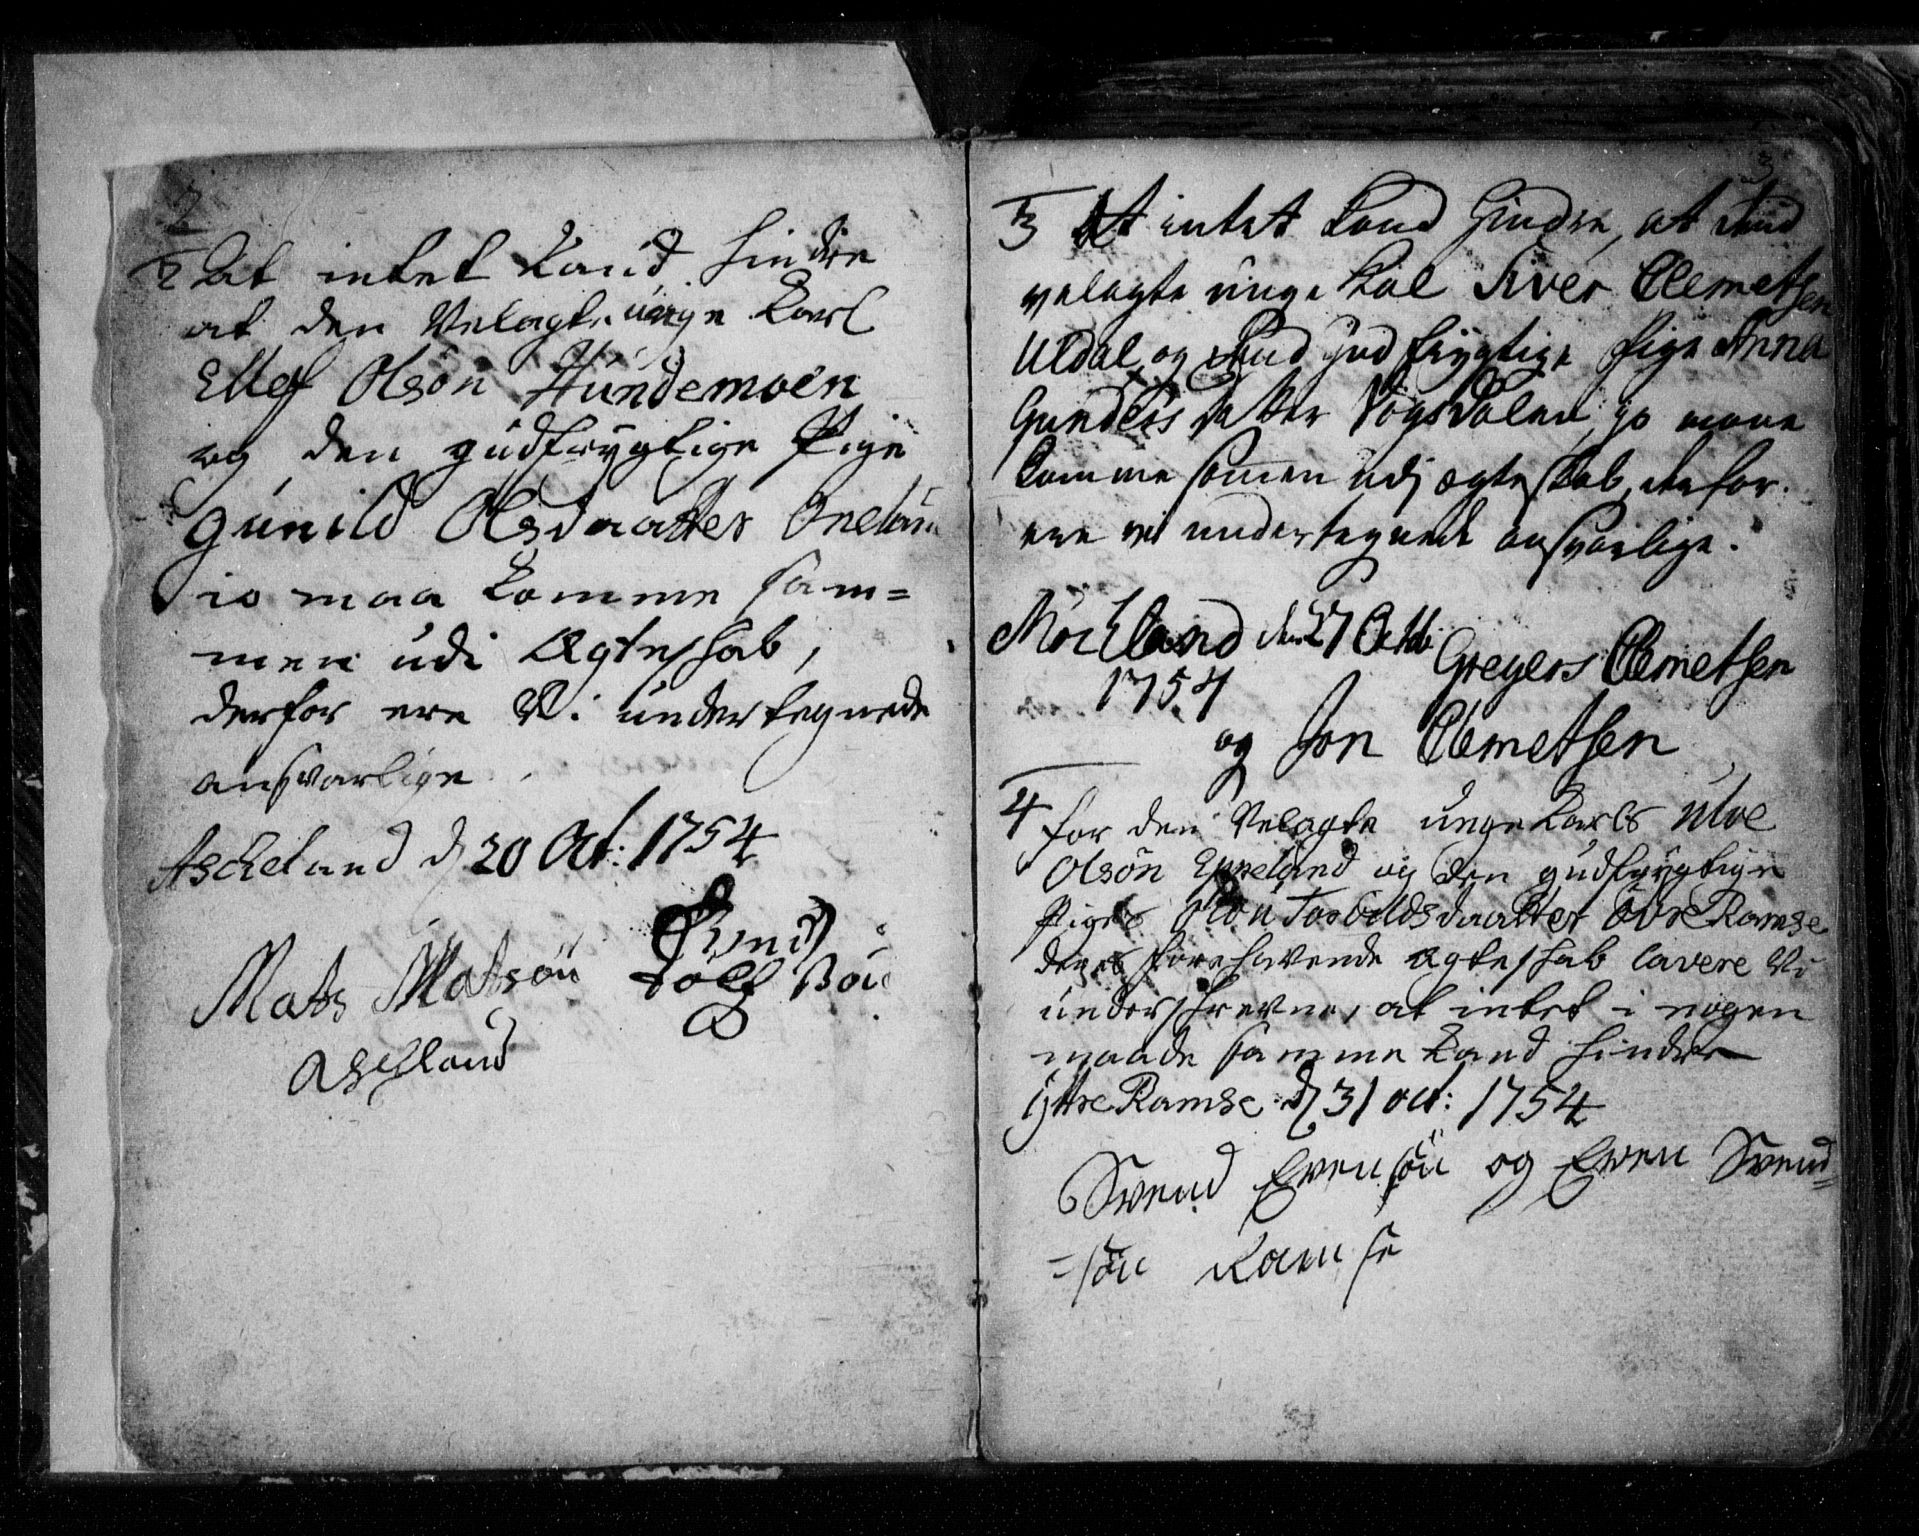 2
2 At intet kand hindre
at den Velagte unge Karl
Ellef Olsøn Hundemoen
og den gudfrygtige Pige
Gunild Olsdaatter
io maa komme sam=
men udi Ægteskab,
derfor ere Vi undertegnede
ansvarlige
Ascheland d 20 Oct: 1754
Mats Matsøn
Aschland
3
3 At intet kand hindre, at
velagte unge Kal Siver Clemetsen
Uldal, og gudfrygtige Pige Anna
Gunders datter Vogsdalen, jo maae
komme sammen udj ægteskab, derfor
ere vi undertegnede ansvarlige.
Mochland den 27 Octb:
1754
Gregers Clemetsen
og Jon Clemetsen
4 For den Velagte unge Karls
Olsøn Eppeland og den gudfrygtige
Piges Torbildsdaatter Øvre Ramse
deres forehavende Ægteskab lavere Vi
underschrevne, at intet i nogen
maade samme kand hindre
Ytre Ramse d 31 oct: 1754
Svend Evensøn og Even Svend=
=søn Ramse